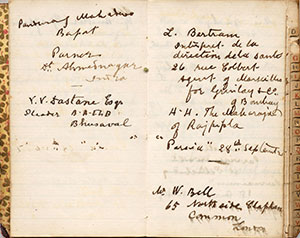 Bapat
Parner
Dt. Ahmednagar
India
V. V. Dastane Esqr
Pleader B.A. LL.B
Bhusaval
L. Bertram
Interpret. de la
direction de la santé
26 rue Colbert
agent of Marseilles
for Grindlay & Co.
of Bombay
H. H. The Maharaja
of Rajpipla
"Persia" 28th September
Mr W. Bell
65 North side Clapham
Common
London